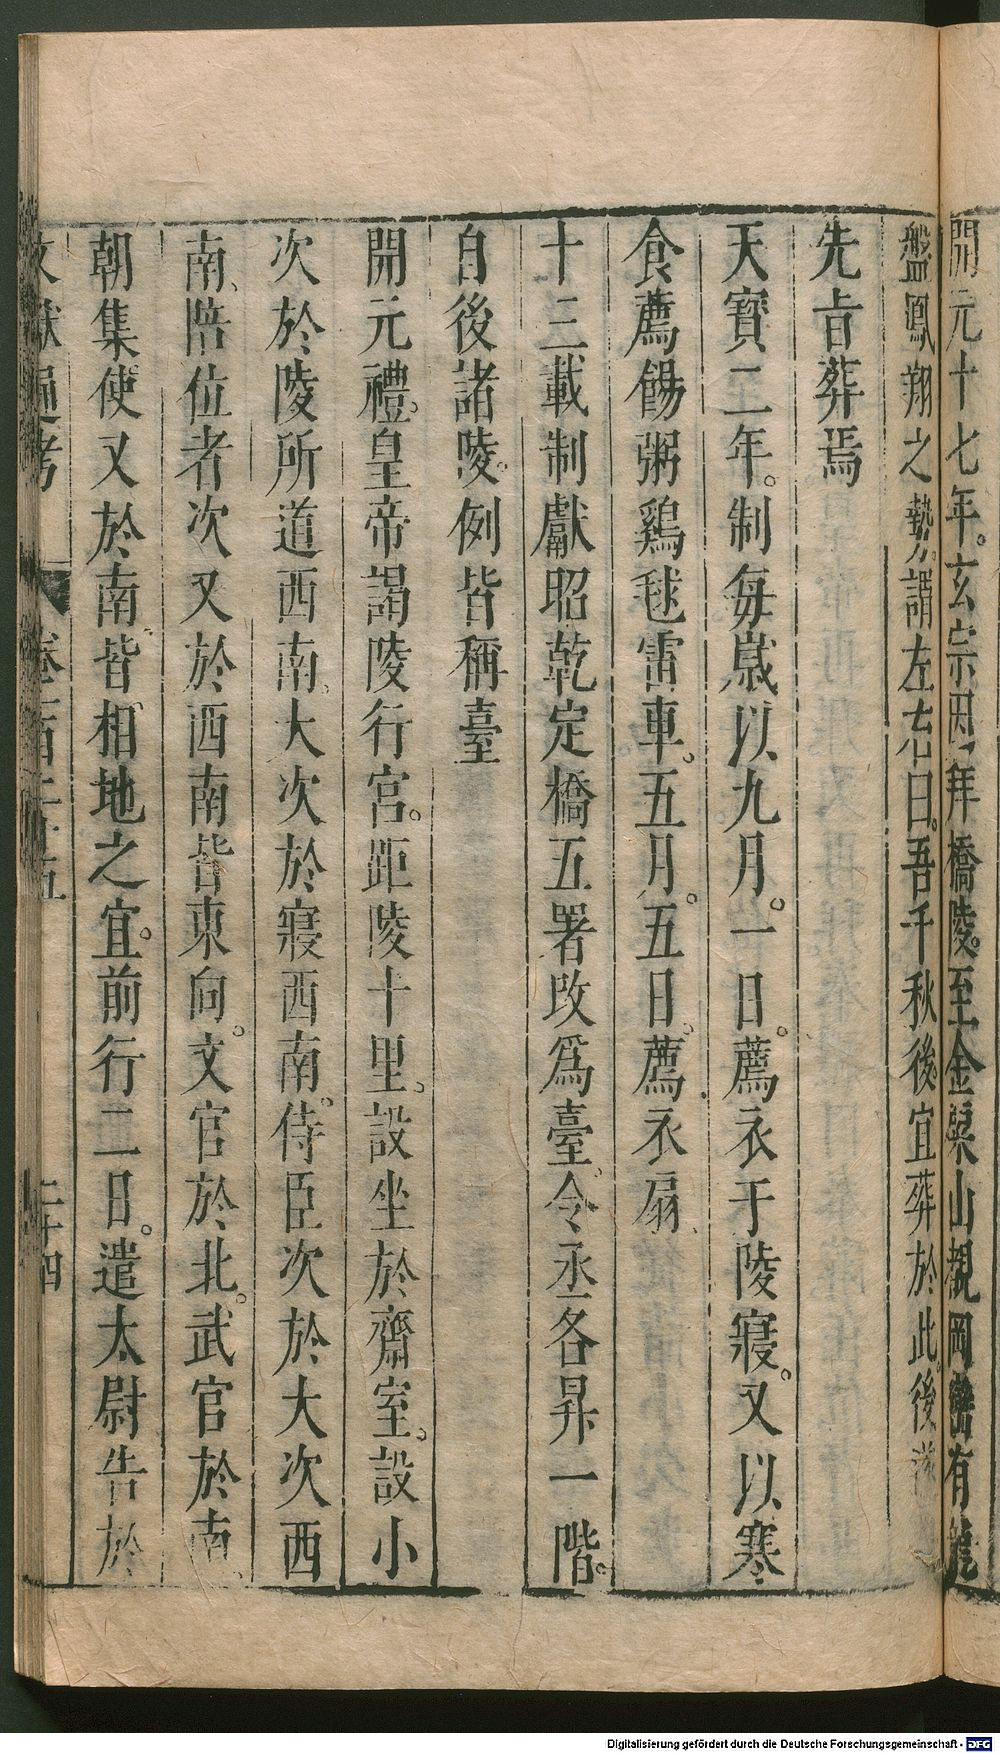 開元十七年。玄宗因拜橋陵。至金粟山覩岡巒有龍
盤鳳翔之勢。謂左右曰。吾千秋後宜葬於此。後遂
先旨葬焉
天寶二年。制每嵗以九月。一日。薦衣于陵寢。又以寒
食薦餳粥鷄毬雷車。五月。五日。薦衣扇、
十三載制獻昭乾定橋五署改爲臺。令丞各昇一階。
自後諸陵。例皆稱臺
開元禮。皇帝謁陵行宮。距陵十里。設坐於齋室。設小
次於陵所道西南。大次於寢西南。侍臣次於大次西
南。陪位者次又於西南皆東向。文官於北。武官於南、
朝集使又於南、皆相地之宜。前行二日。遣太尉告於
文獻通考 卷一百二十五 二十四
Digitalisierung gefördert durch die Deutsche Forschungsgemeinschaft - DFG